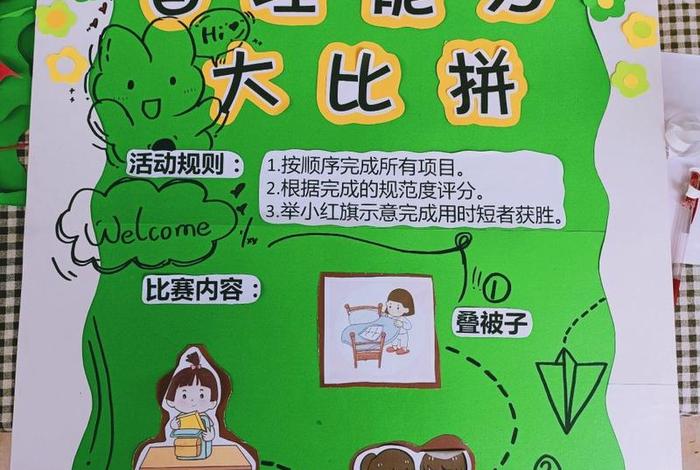 Hi
自理能力
大比拼
活动规则：
1.按顺序完成所有项目。
2.根据完成的规范度评分。
3.举小红旗示意完成用时短者获胜。
Welcome
比赛内容：
①
叠被子
②